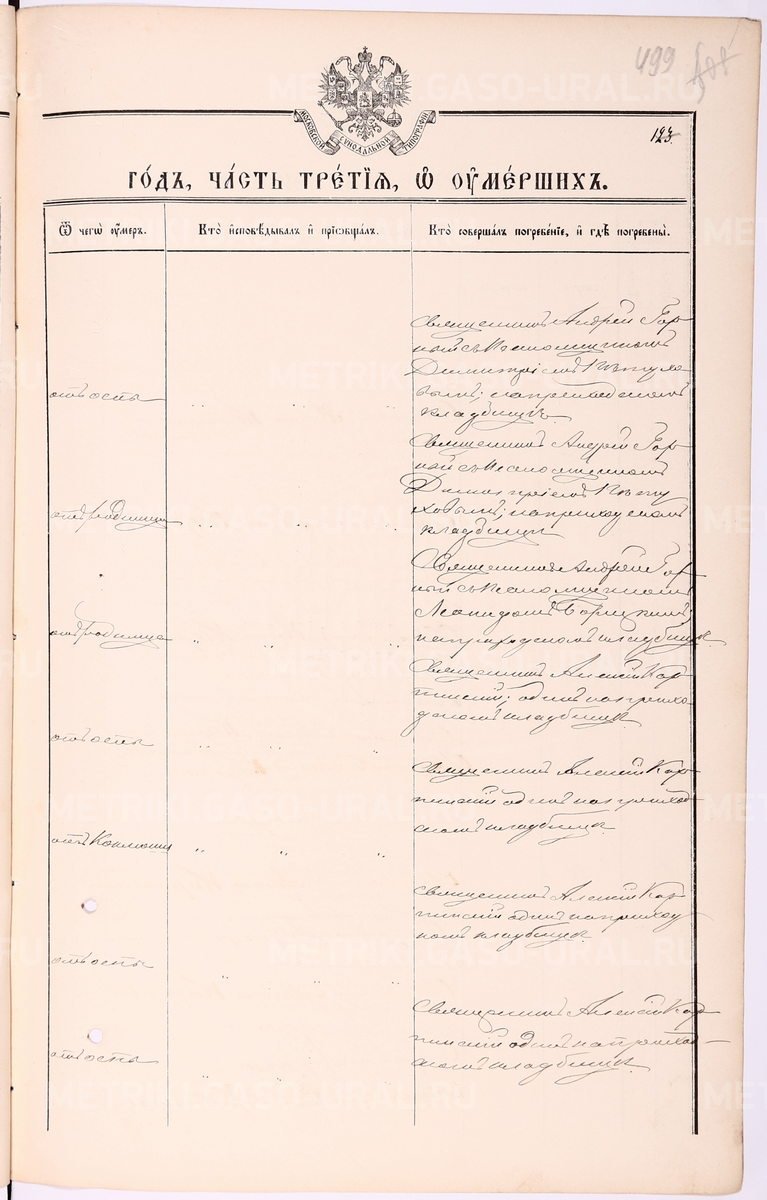 499
123
МОСКОВСКОЙ СѴНОДАЛЬНОЙ ТИПОГРАФІИ
ГО́ДЪ, ЧА́СТЬ ТРЕ́ТІѦ, Ѡ҆ ОУ҆МЕ́РШИХЪ.
Ѿ чегѡ̀ оу҆́меръ.
Кто̀ и҆сповѣ́дывалъ и҆ прїѡбща́лъ.
Кто̀ соверша́лъ погребе́нїе, и҆ гдѣ̀ погребены̀.
отъ оспы
Священникъ Андрей Гор
ный съ псаломщикомъ
Димитріемъ
на приходскомъ
кладбищѣ.
отъ родимца
Священникъ Андрей Гор
ный съ псаломщикомъ
Димитріемъ
на приходскомъ
кладбищѣ
отъ родимца
Священникъ Андрей Гор
ный съ псаломщикомъ
Леонидомъ
на приходскомъ кладбищѣ.
отъ оспы
Священникъ Алексій Кор
пинскій; одинъ на прихо
дскомъ кладбищѣ.
отъ коклюша
Священникъ Алексій Кор
пинскій одинъ на приход
скомъ кладбищѣ.
отъ оспы
Священникъ Алексій Кор
пинскій одинъ на приход
комъ кладбищѣ.
отъ оспы
Священникъ Алексій Кор
пинскій одинъ на приход
скомъ кладбищѣ.
METRIKI.GASO-URAL.RU